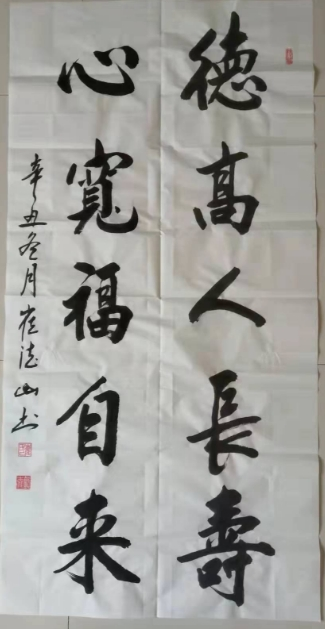 德高人長壽
心寬福自来
辛丑冬月崔德山书